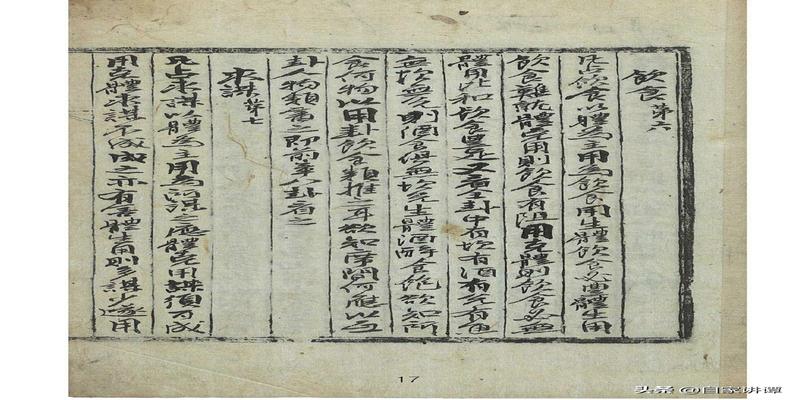 飲食第六
凡占飲食以體為主用為飲食用生體飲食必豊體生用
飲食難就體克用則飲食有阻用克體則飲食必無
體用比和飲食豊足又看全卦中有坎有酒有兌有食
無坎無兌則酒食俱無坎兌生體酒醉食飽欲知所
食何物以用卦飲食類推之耳欲知席間何應以互
卦人物類看之即前章八卦看之
求謀第七
凡占求謀以體為主用為所謀之應體克用謀須可成
用克體求謀不成成之亦有害體生用則多謀少遂用
17
头条 @自家讲谭